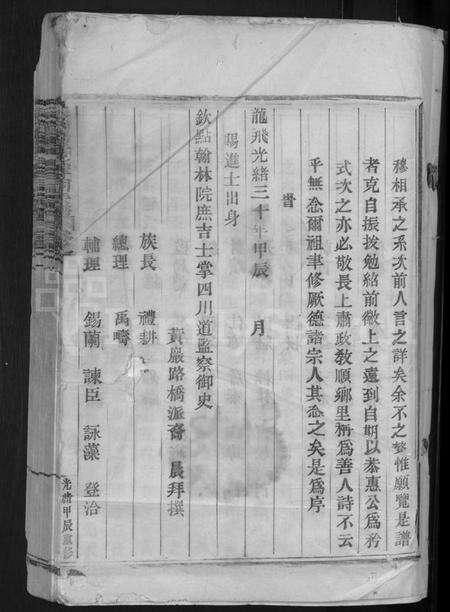 穆相承之系次前人言之詳矣余不之贅惟願覽是譜
者克自振拔勉紹前徽上之遠到自期以恭惠公為矜
式次之亦必敬長上肅政教順鄉里稱為善人詩不云
乎無忝爾祖聿修厥德諸宗人其念之矣是為序
旹
龍飛光緒三十年甲辰 月
賜進士出身
欽點翰林院庶吉士掌四川道監察御史
黃巖路橋派裔 晨拜撰
族長 禮耕
總理 禹疇
輔理 錫蘭 諫臣 詠藻 登治
光緒甲辰重修